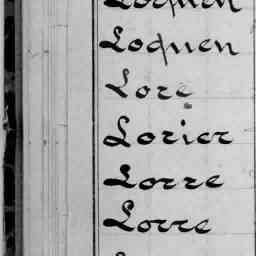 Loquen
Loquen
Lore
Lorier
Lorre
Lorre